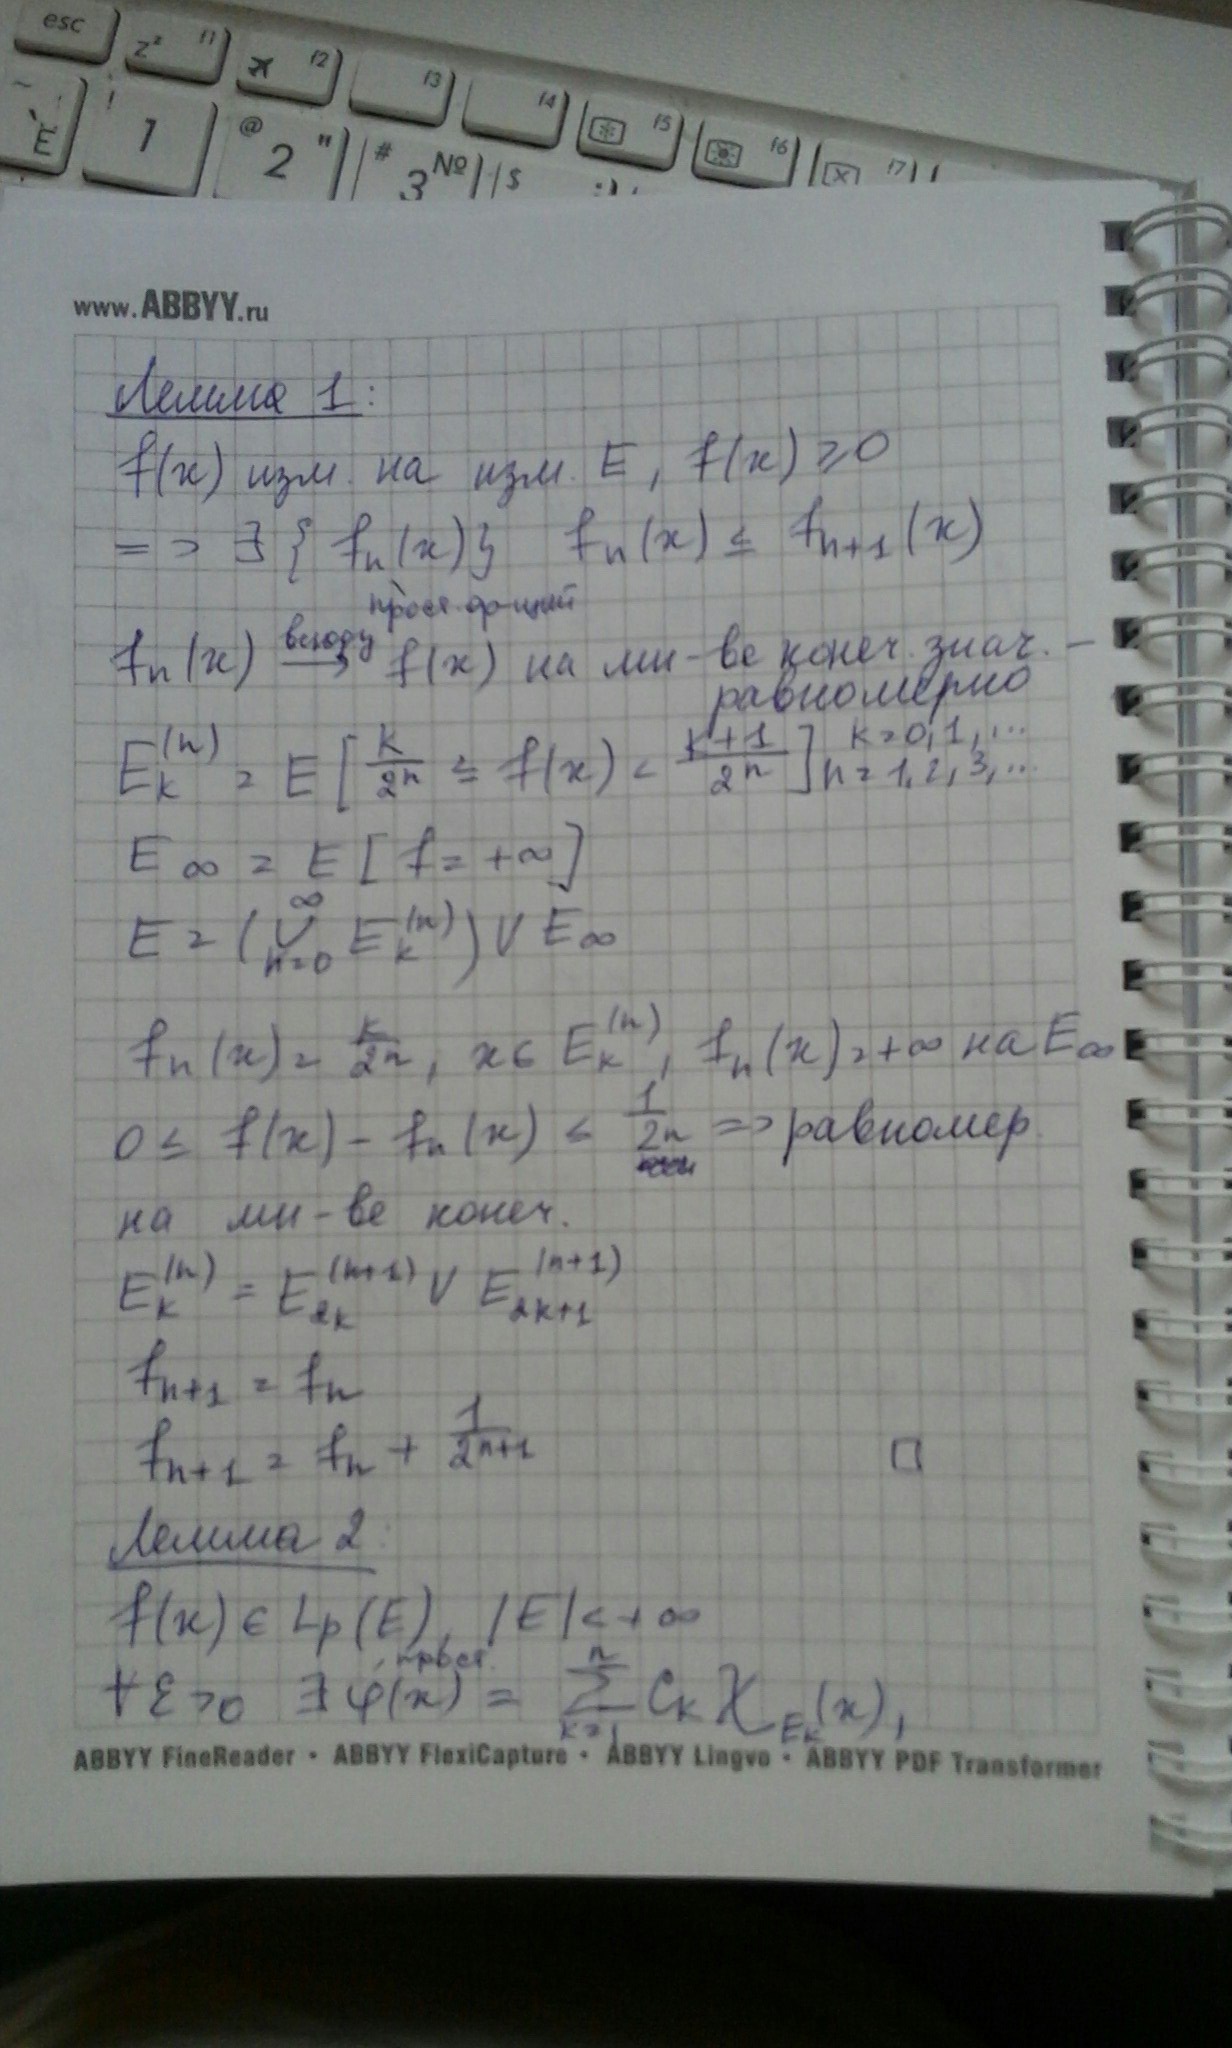 esc
z² 11 ж 12 13 14 15 16 17
Ё ! 1 @ 2 " # 3 № $
www.ABBYY.ru
Лемма 1:
f(x) изм. на изм. E, f(x) ≥ 0
=> ∃ {fn(x)} fn(x) ≤ fn+1(x)
прост. ф-ций
fn(x) всюду → f(x) на мн-ве конеч. знач. –
равномерно
Ek^(n) = E [k/2^n ≤ f(x) < (k+1)/2^n] k=0,1,...
n=1,2,3,...
E∞ = E [f = +∞]
E = (∪_{n=0}^∞ Ek^(n)) ∪ E∞
fn(x) = k/2^n, x∈ Ek^(n), fn(x) = +∞ на E∞
0 ≤ f(x) – fn(x) ≤ 1/2^n => равномер.
на мн-ве конеч.
Ek^(n) = E2k^(n+1) ∪ E2k+1^(n+1)
fn+1 = fn
fn+1 = fn + 1/2^(n+1) □
Лемма 2:
f(x) ∈ Lp(E), |E| < +∞
прост.
∀ε>0 ∃ φ(x) = ∑_{k=1}^n Ck χ_{Ek}(x),
ABBYY FineReader • ABBYY FlexiCapture • ABBYY Lingvo • ABBYY PDF Transformer